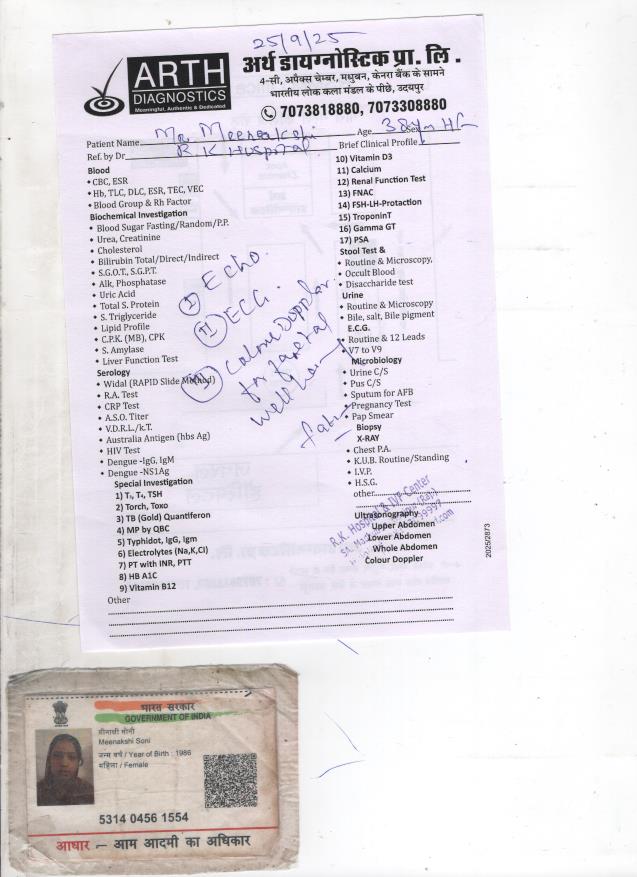 25/9/25
ARTH
DIAGNOSTICS
Meaningful, Authentic & Dedicated
अर्थ डायग्नोस्टिक प्रा. लि .
4-सी, अपैक्स चेम्बर, मधुबन, केनरा बैंक के सामने
भारतीय लोक कला मंडल के पीछे, उदयपुर
7073818880, 7073308880
Patient Name Mr. Meenakshi Age 38 Sex
Ref. by Dr R K Hospital Brief Clinical Profile
Blood
CBC, ESR
Hb, TLC, DLC, ESR, TEC, VEC
Blood Group & Rh Factor
Biochemical Investigation
Blood Sugar Fasting/Random/P.P.
Urea, Creatinine
Cholesterol
Bilirubin Total/Direct/Indirect
S.G.O.T., S.G.P.T.
Alk, Phosphatase
Uric Acid
Total S. Protein
S. Triglyceride
Lipid Profile
C.P.K. (MB), CPK
S. Amylase
Liver Function Test
Serology
Widal (RAPID Slide Method)
R.A. Test
CRP Test
A.S.O. Titer
V.D.R.L./k.T.
Australia Antigen (hbs Ag)
HIV Test
Dengue -IgG, IgM
Dengue -NS1Ag
Special Investigation
1) T₃, T₄, TSH
2) Torch, Toxo
3) TB (Gold) Quantiferon
4) MP by QBC
5) Typhidot, IgG, Igm
6) Electrolytes (Na,K,Cl)
7) PT with INR, PTT
8) HB A1C
9) Vitamin B12
Other
10) Vitamin D3
11) Calcium
12) Renal Function Test
13) FNAC
14) FSH-LH-Protaction
15) TroponinT
16) Gamma GT
17) PSA
Stool Test &
Routine & Microscopy,
Occult Blood
Disaccharide test
Urine
Routine & Microscopy
Bile, salt, Bile pigment
E.C.G.
Routine & 12 Leads
V7 to V9
Microbiology
Urine C/S
Pus C/S
Sputum for AFB
Pregnancy Test
Pap Smear
Biopsy
X-RAY
Chest P.A.
K.U.B. Routine/Standing
I.V.P.
H.S.G.
other
Ultrasonography
Upper Abdomen
Lower Abdomen
Whole Abdomen
Colour Doppler
I Echo.
II ECG.
III Colour Doppler
for
well
R.K. Hospital & IVF Center
2025/2873
भारत सरकार
GOVERNMENT OF INDIA
मीनाक्षी सोनी
Meenakshi Soni
जन्म वर्ष / Year of Birth : 1986
महिला / Female
5314 0456 1554
आधार – आम आदमी का अधिकार